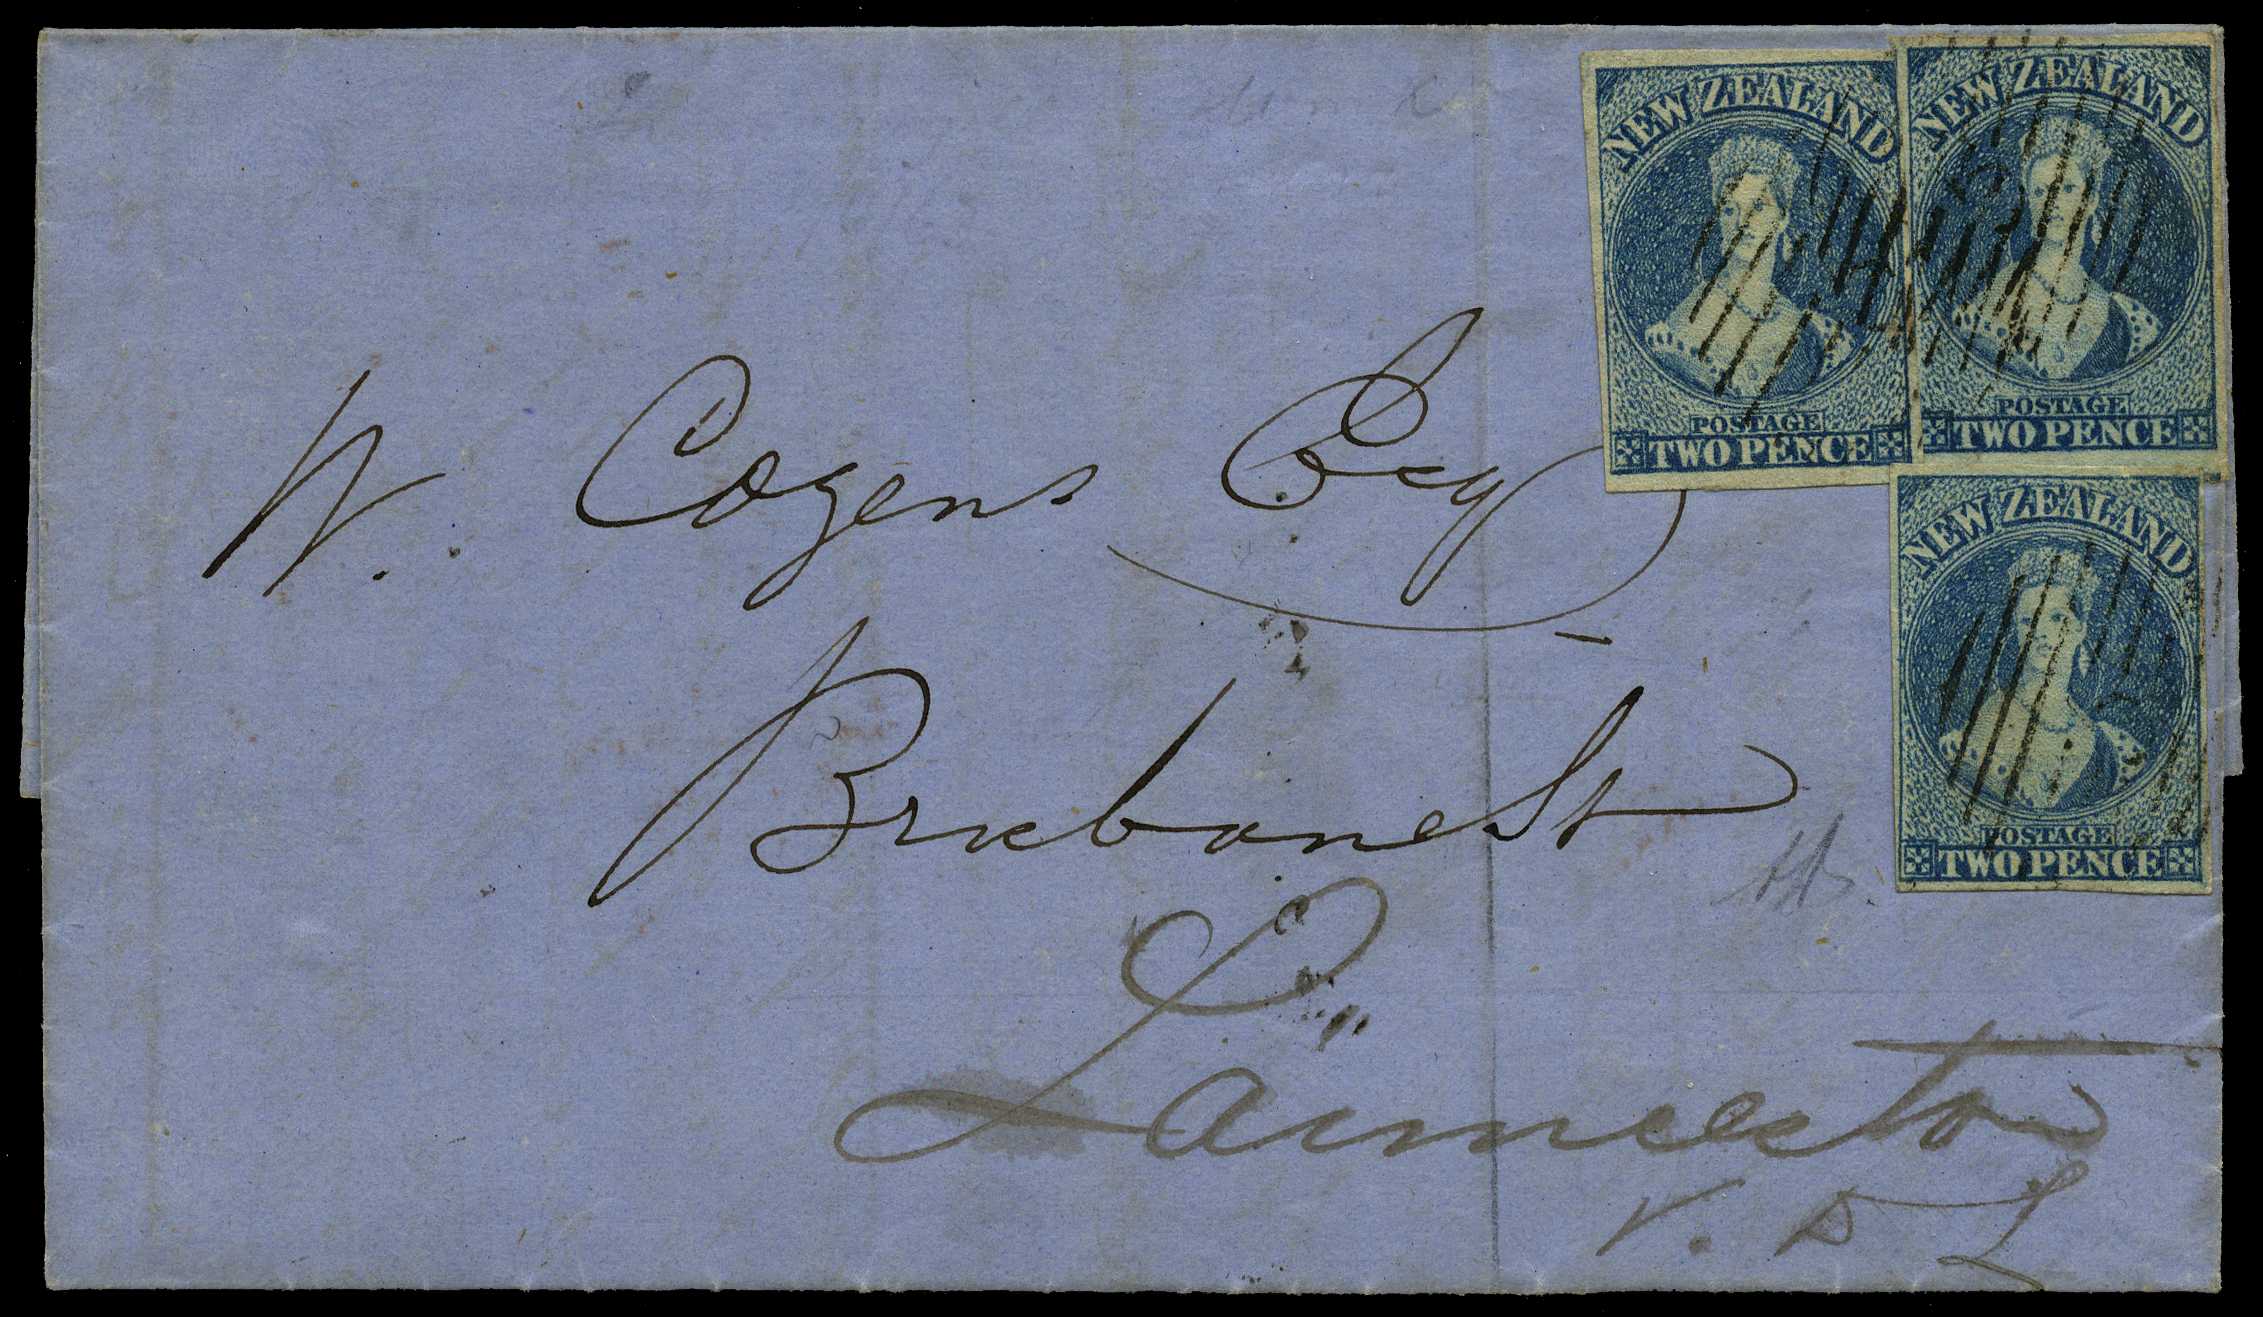 NEW ZEALAND
POSTAGE
TWO PENCE
NEW ZEALAND
POSTAGE
TWO PENCE
W. Cozens Esq
Brisbane St
NEW ZEALAND
POSTAGE
TWO PENCE
Launceston
V. D L